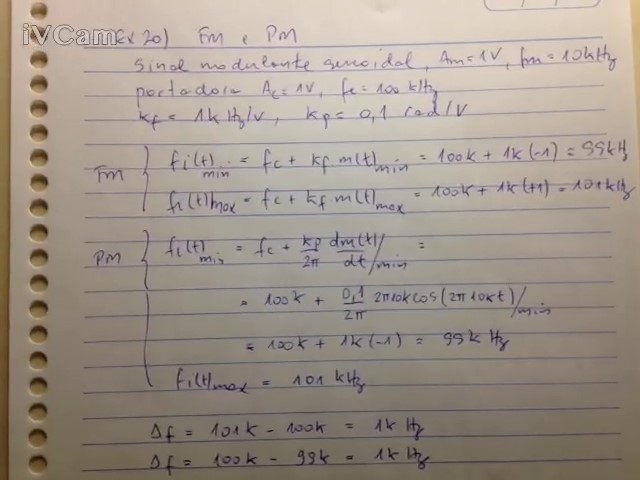 iVCam
Ex 20) FM e PM
sinal modulante senoidal, Am = 1V, fm = 10 kHz
portadora Ac = 1V, fc = 100 kHz
kf = 1k Hz/V, kp = 0,1 rad/V
FM { fi(t)min = fc + kf m(t)min = 100k + 1k (-1) = 99 kHz
fi(t)max = fc + kf m(t)max = 100k + 1k (+1) = 101 kHz
PM { fi(t)min = fc + kp/2π dm(t)/dt /min =
= 100k + 0,1/2π 2π10k cos(2π10kt)/min
= 100k + 1k (-1) = 99k Hz
fi(t)max = 101 kHz
Δf = 101k - 100k = 1k Hz
Δf = 100k - 99k = 1k Hz